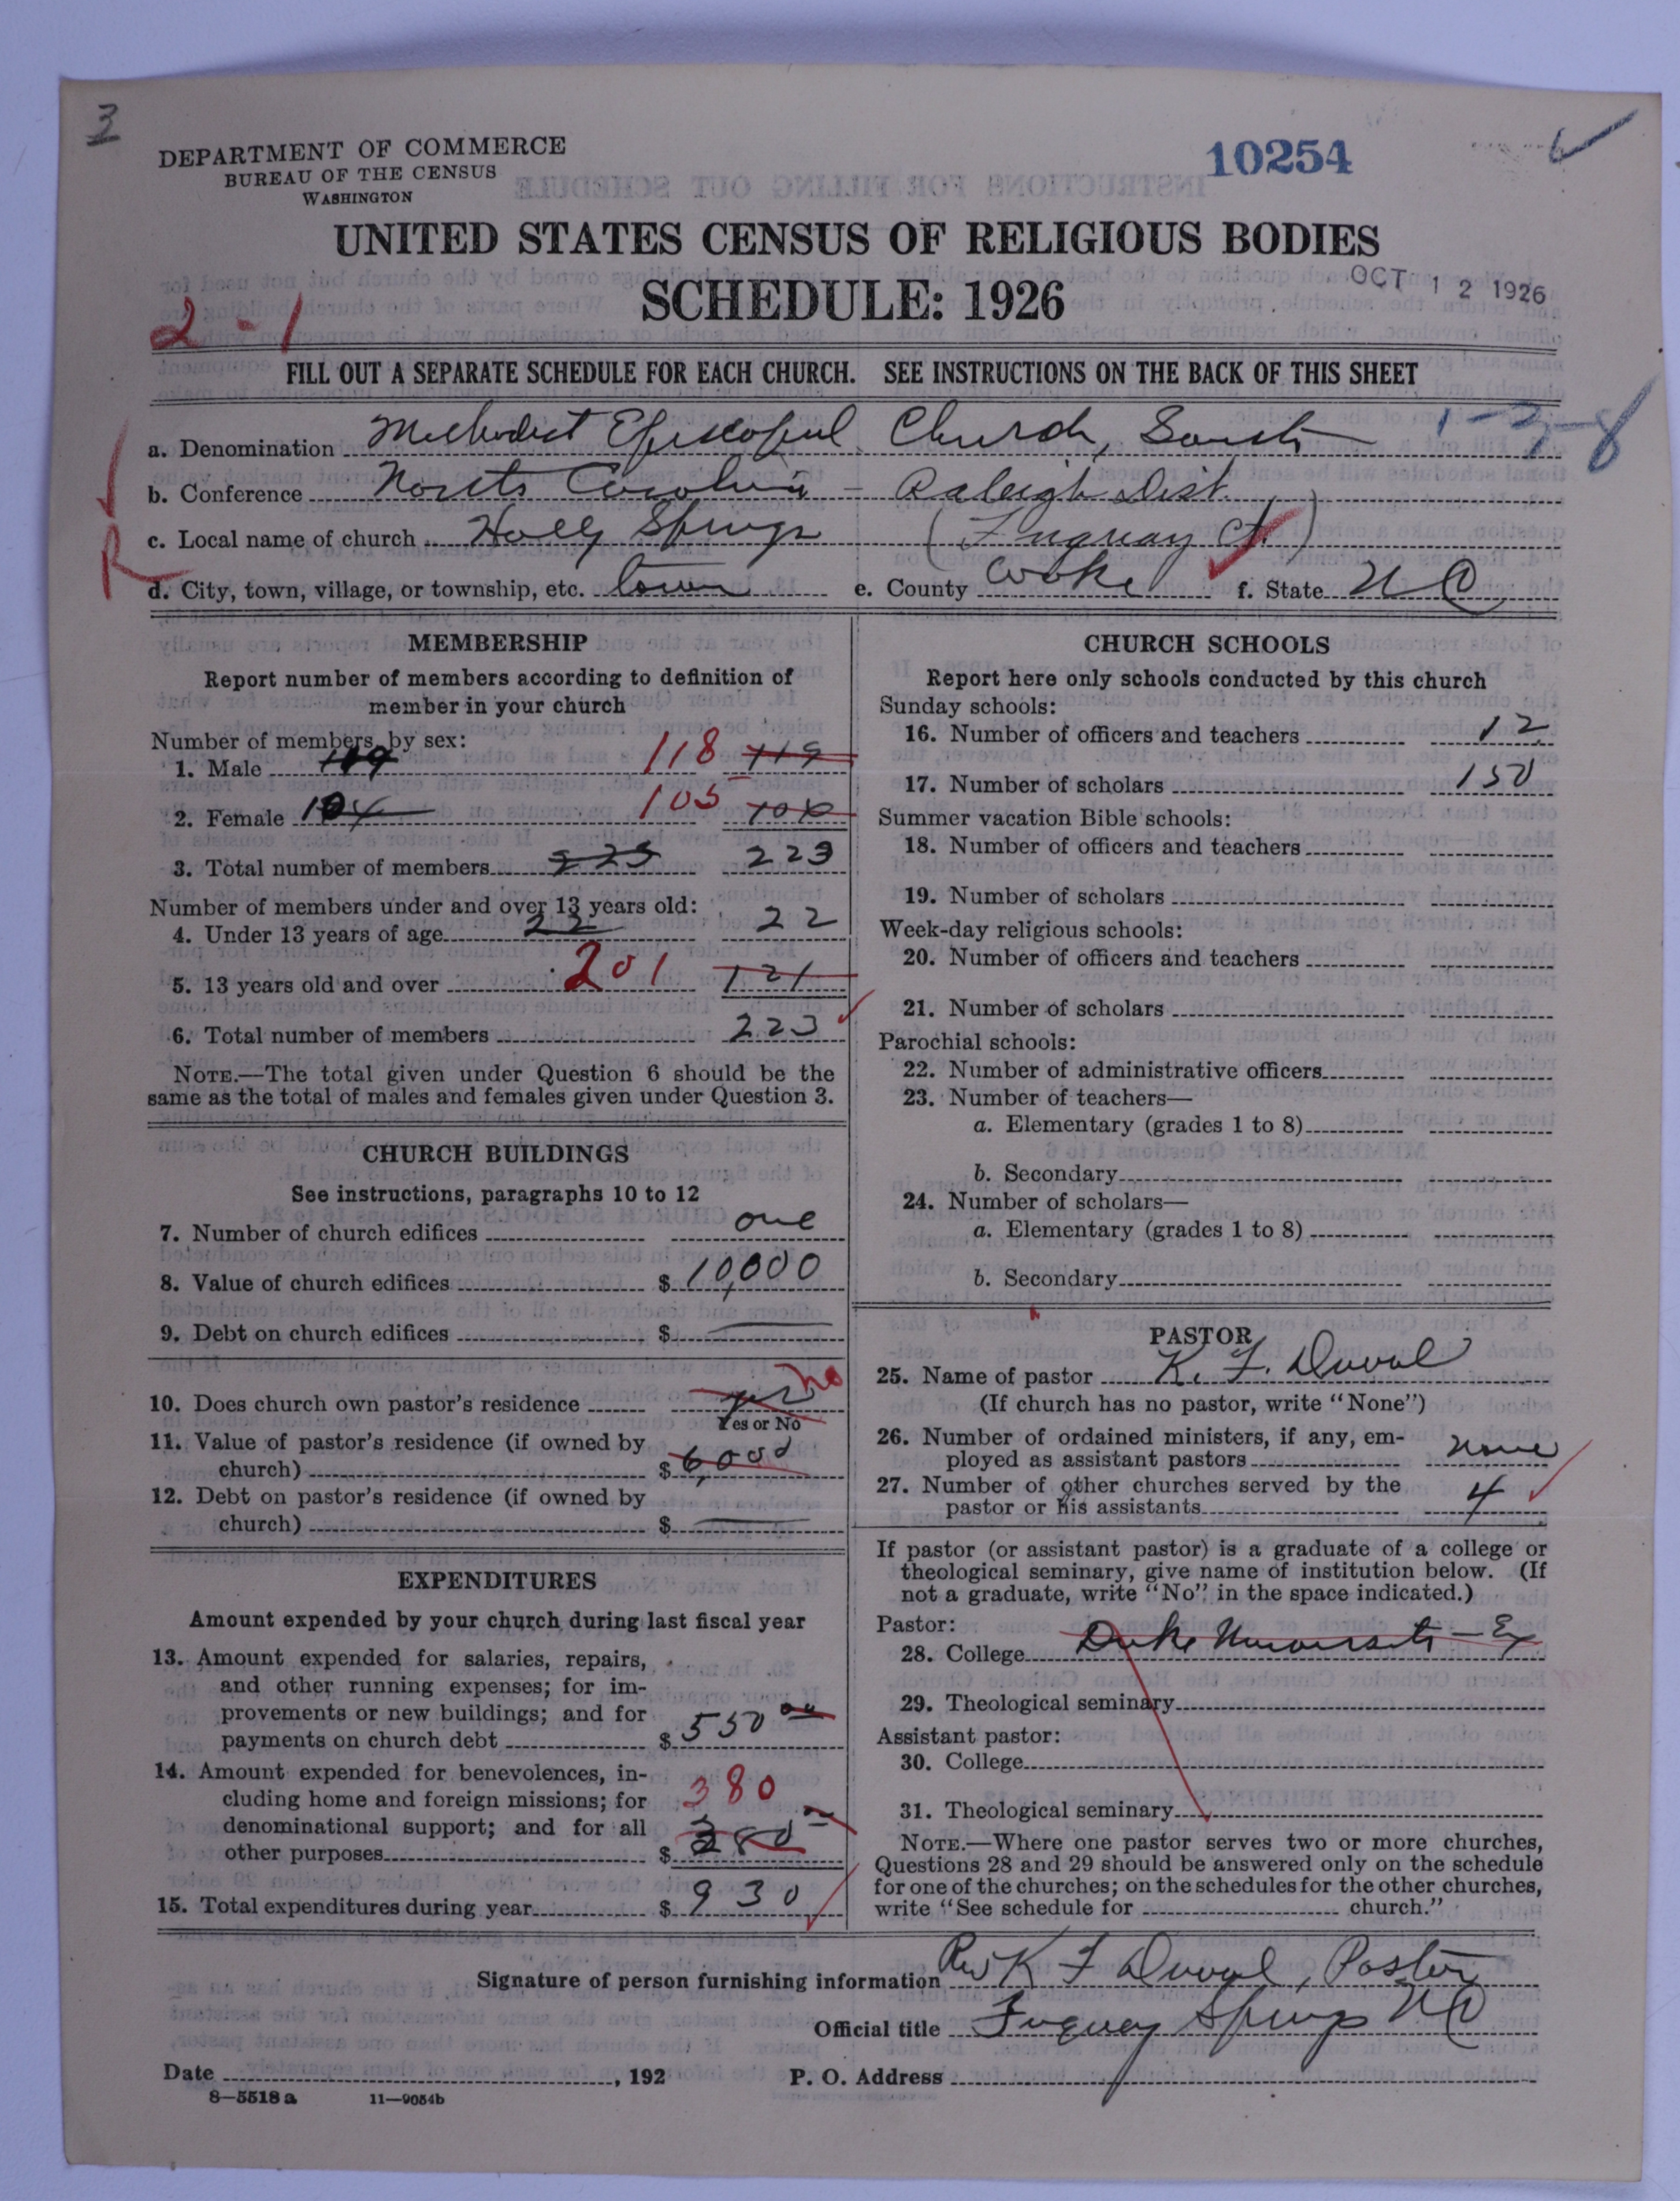 3
DEPARTMENT OF COMMERCE
BUREAU OF THE CENSUS
WASHINGTON
10254
UNITED STATES CENSUS OF RELIGIOUS BODIES
SCHEDULE: 1926
OCT 12 1926
2-1
FILL OUT A SEPARATE SCHEDULE FOR EACH CHURCH. SEE INSTRUCTIONS ON THE BACK OF THIS SHEET
a. Denomination Methodist Episcopal Church, South
1-3-8
b. Conference North Carolina - Raleigh Dist.
c. Local name of church Holly Springs (Fuquay Ct.)
R
d. City, town, village, or township, etc. town e. County Wake f. State N C
MEMBERSHIP
Report number of members according to definition of
member in your church
Number of members by sex:
1. Male 119 118 119
2. Female 104 105 106
3. Total number of members 223 223
Number of members under and over 13 years old:
4. Under 13 years of age 22 22
5. 13 years old and over 201 121
6. Total number of members 223
NOTE.—The total given under Question 6 should be the
same as the total of males and females given under Question 3.
CHURCH BUILDINGS
See instructions, paragraphs 10 to 12
7. Number of church edifices one
8. Value of church edifices $ 10,000
9. Debt on church edifices $
10. Does church own pastor's residence yes no
Yes or No
11. Value of pastor's residence (if owned by
church) $ 6,000
12. Debt on pastor's residence (if owned by
church) $
EXPENDITURES
Amount expended by your church during last fiscal year
13. Amount expended for salaries, repairs,
and other running expenses; for im-
provements or new buildings; and for
payments on church debt $ 550 00
14. Amount expended for benevolences, in-
cluding home and foreign missions; for 380
denominational support; and for all
other purposes $ 380
15. Total expenditures during year $ 930
CHURCH SCHOOLS
Report here only schools conducted by this church
Sunday schools:
16. Number of officers and teachers 12
17. Number of scholars 150
Summer vacation Bible schools:
18. Number of officers and teachers
19. Number of scholars
Week-day religious schools:
20. Number of officers and teachers
21. Number of scholars
Parochial schools:
22. Number of administrative officers
23. Number of teachers—
a. Elementary (grades 1 to 8)
b. Secondary
24. Number of scholars—
a. Elementary (grades 1 to 8)
b. Secondary
PASTOR
25. Name of pastor K. F. Duval
(If church has no pastor, write "None")
26. Number of ordained ministers, if any, em-
ployed as assistant pastors none
27. Number of other churches served by the
pastor or his assistants 4
If pastor (or assistant pastor) is a graduate of a college or
theological seminary, give name of institution below. (If
not a graduate, write "No" in the space indicated.)
Pastor:
28. College Duke University - Ex
29. Theological seminary
Assistant pastor:
30. College
31. Theological seminary
NOTE.—Where one pastor serves two or more churches,
Questions 28 and 29 should be answered only on the schedule
for one of the churches; on the schedules for the other churches,
write "See schedule for church."
Signature of person furnishing information Rev K F Duval, Pastor
Official title Fuquay Springs N C
Date , 192 P. O. Address
8—5518 a 11—9054b